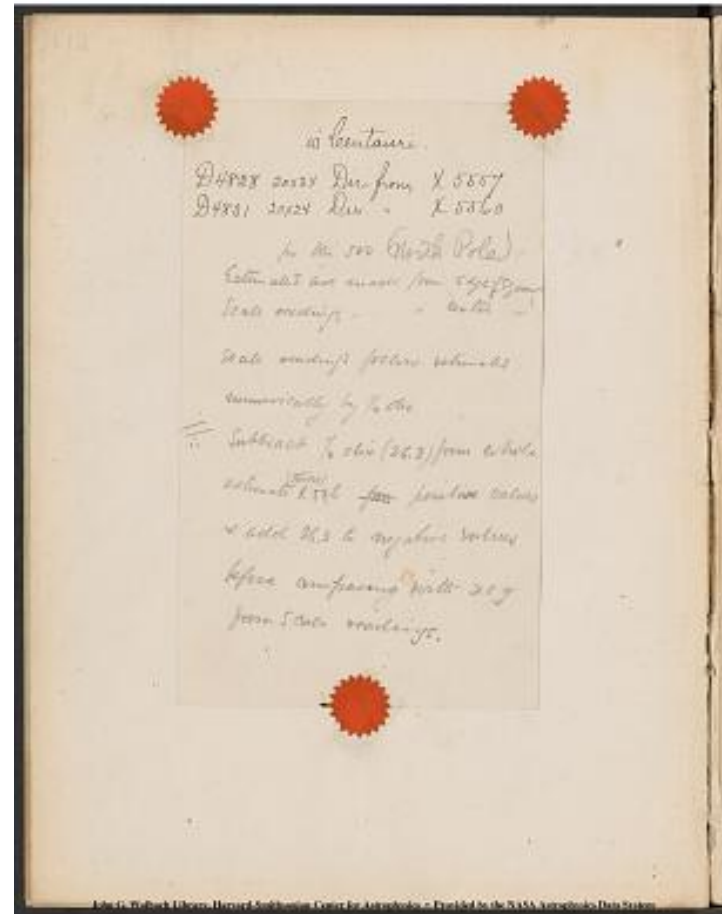 ω Centauri.
D4828 20x24 Dir. from X 5557
D4831 20x24 Dir. " X 5560
(North Pole)
Estimates are made from edge of
Scale readings - " center "
Scale readings follow estimates
numerically by
∴ Subtract (26.3) from whole
estimate positive values
& add 26.3 to negative values
before comparing with
from Scale readings.
John G. Wolbach Library, Harvard-Smithsonian Center for Astrophysics • Provided by the NASA Astrophysics Data System